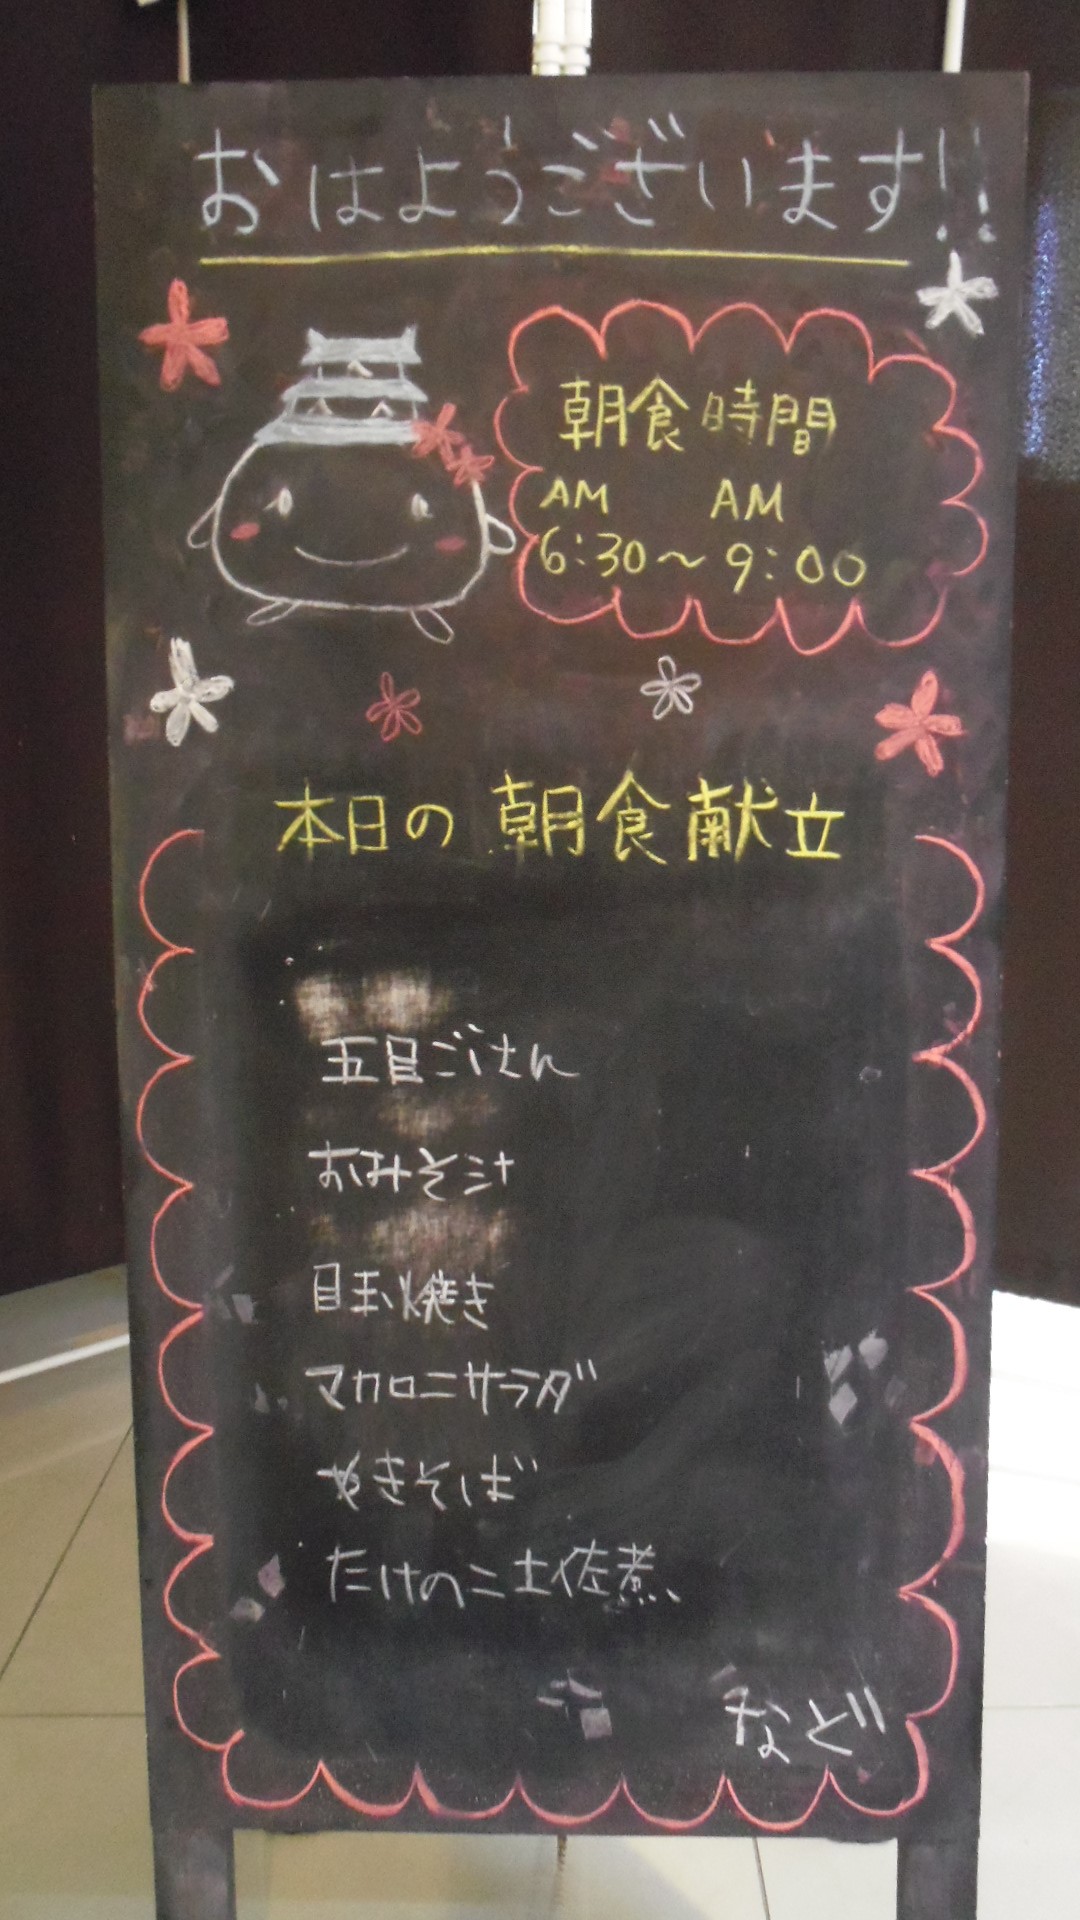 おはようございます!!
朝食時間
AM AM
6:30～9:00
本日の朝食献立
五目ごはん
おみそ汁
目玉焼き
マカロニサラダ
やきそば
たけのこ土佐煮、
など